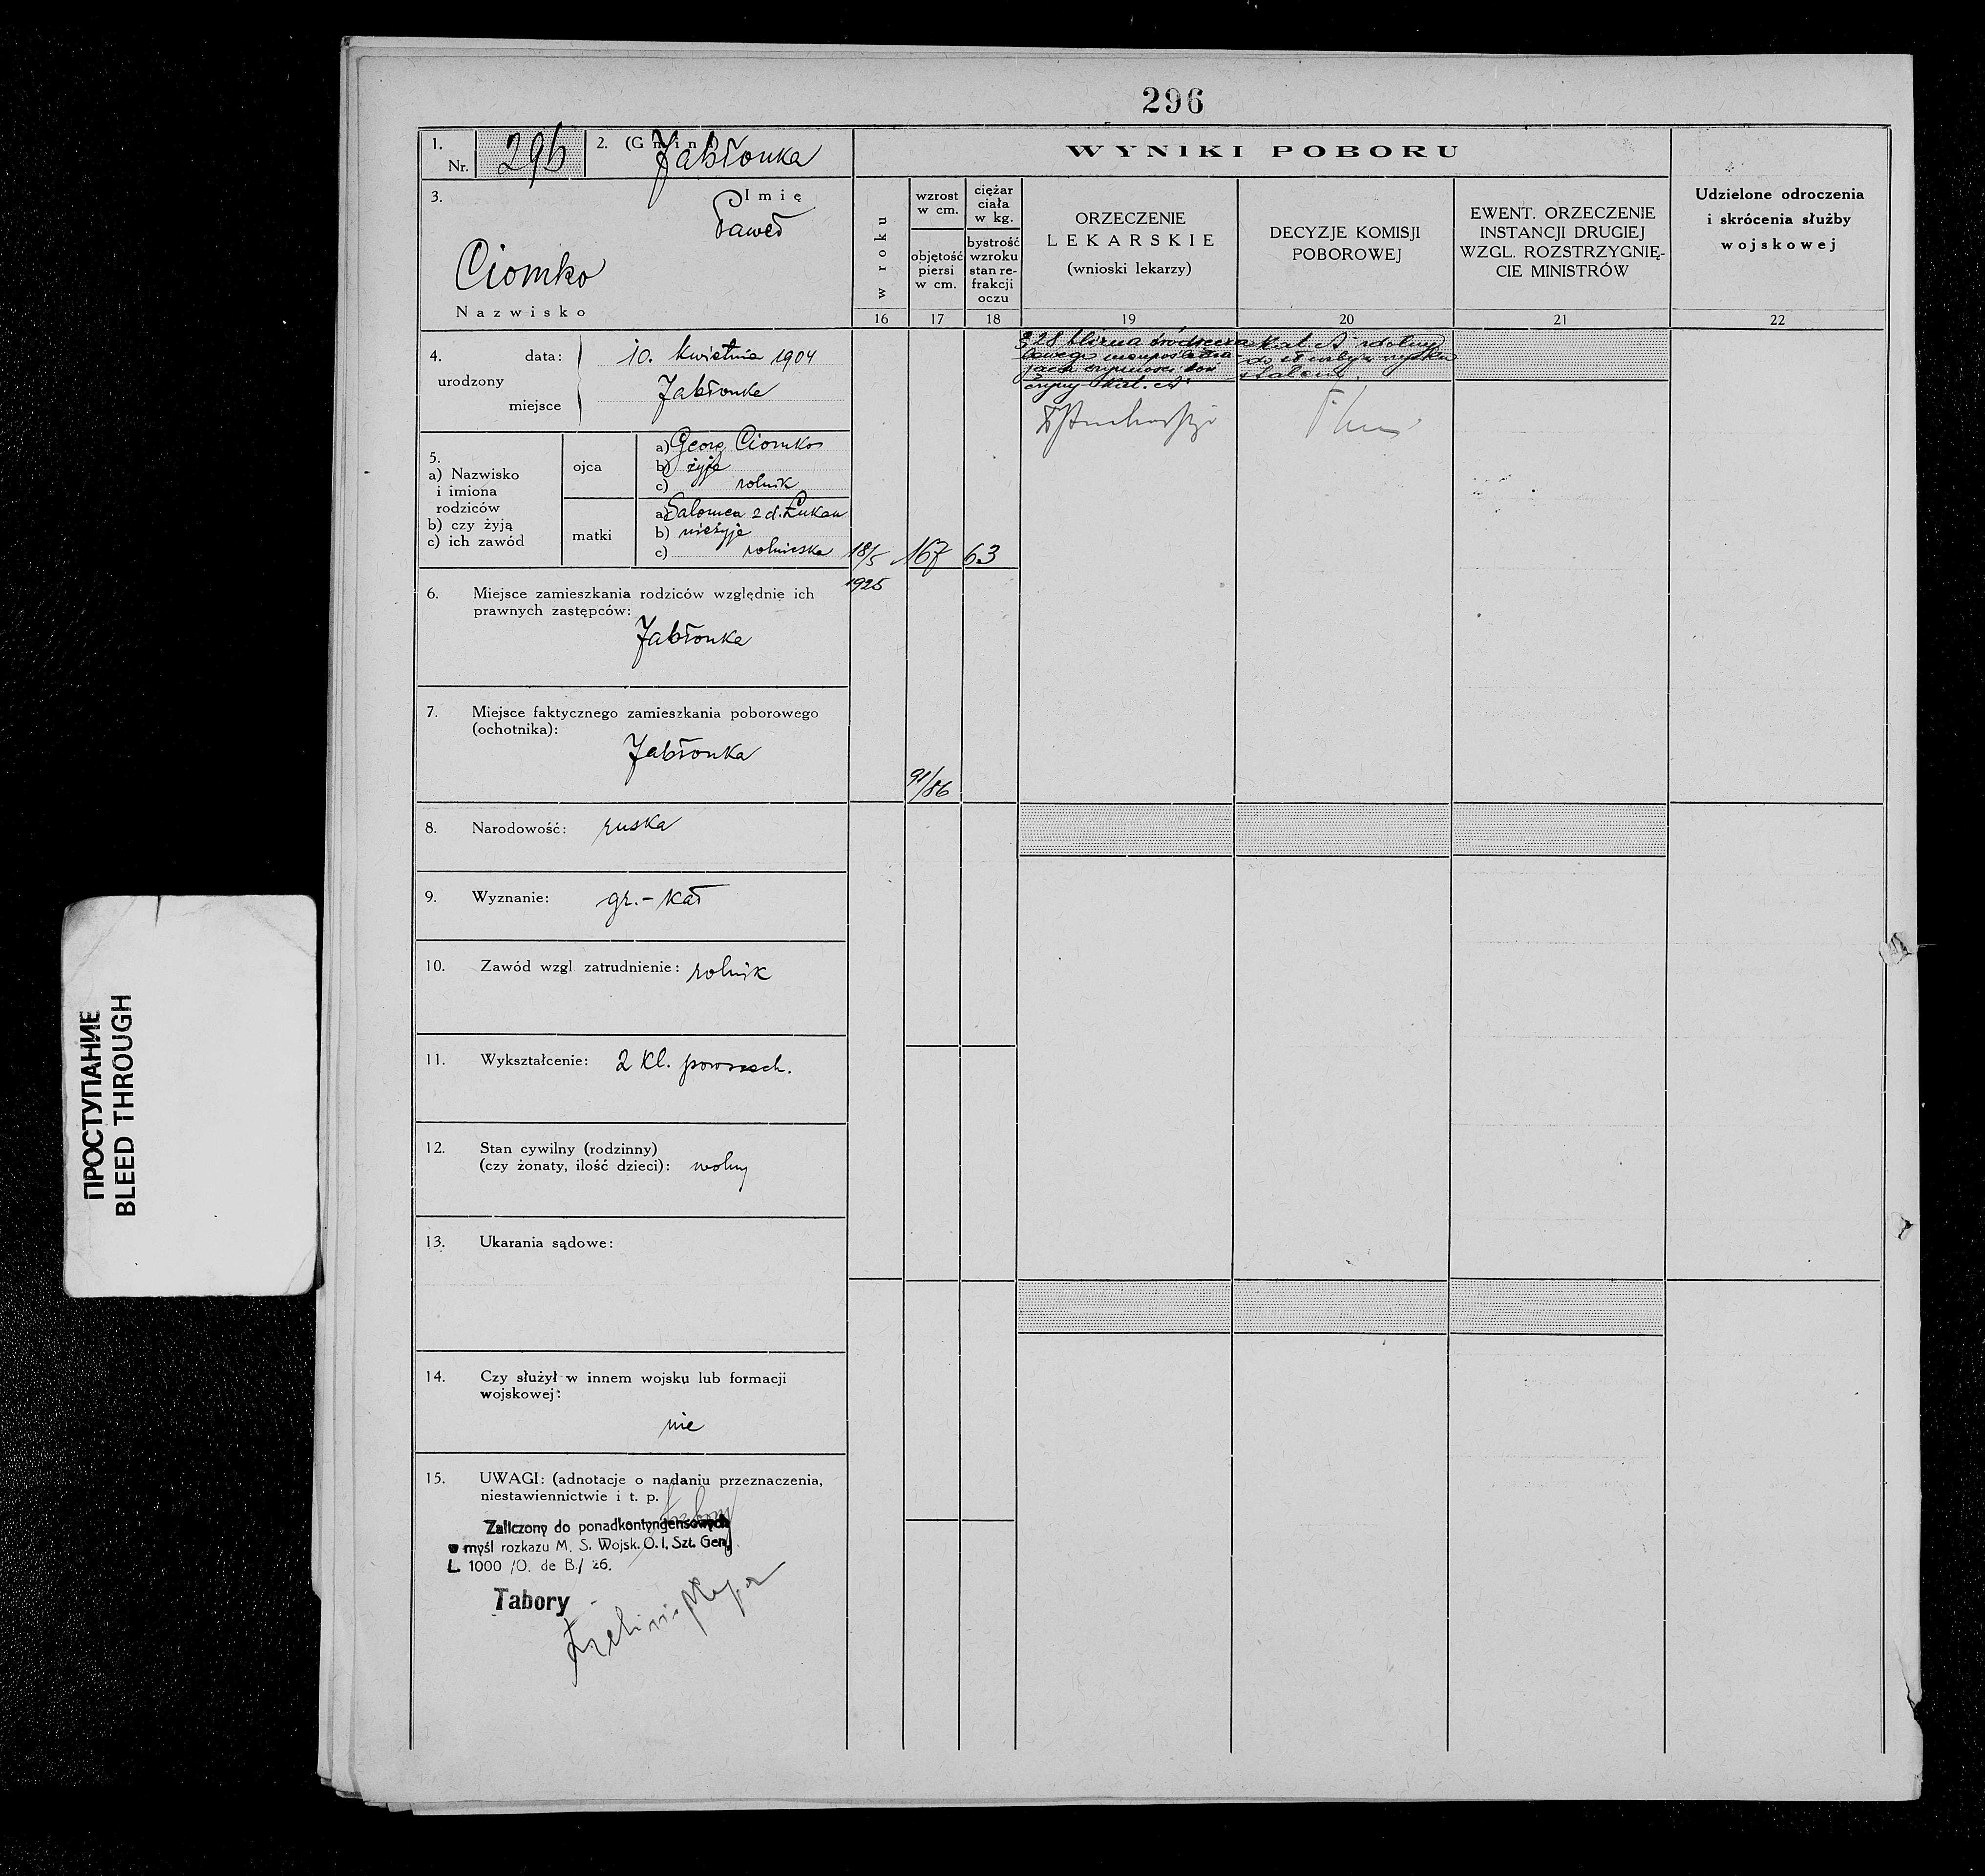 296
1.
Nr. 296
2. (Gmina) Jabłonka
3.
Imię
Paweł
Ciomko
Nazwisko
WYNIKI POBORU
w roku
wzrost
w cm.
objętość
piersi
w cm.
ciężar
ciała
w kg.
bystrość
wzroku
stan re-
frakcji
oczu
ORZECZENIE
LEKARSKIE
(wnioski lekarzy)
DECYZJE KOMISJI
POBOROWEJ
EWENT. ORZECZENIE
INSTANCJI DRUGIEJ
WZGL. ROZSTRZYGNIĘ-
CIE MINISTRÓW
Udzielone odroczenia
i skrócenia służby
wojskowej
16 17 18 19 20 21 22
4. data: 10. kwietnia 1904
urodzony
miejsce Jabłonka
328 blizna
kat. A zdolny
kat. A
5.
a) Nazwisko
i imiona
rodziców
b) czy żyją
c) ich zawód
ojca
a) Georg Ciomko
b) żyje
c) rolnik
matki
a) Salomea z d. Łukan
b) nieżyje
c) rolniczka
18/5 167 63
1925
6. Miejsce zamieszkania rodziców względnie ich
prawnych zastępców:
Jabłonka
7. Miejsce faktycznego zamieszkania poborowego
(ochotnika):
Jabłonka
91/86
8. Narodowość: ruska
9. Wyznanie: gr.-kat
10. Zawód wzgl zatrudnienie: rolnik
11. Wykształcenie: 2 kl. powszech.
12. Stan cywilny (rodzinny)
(czy żonaty, ilość dzieci): wolny
13. Ukarania sądowe:
14. Czy służył w innem wojsku lub formacji
wojskowej:
nie
15. UWAGI: (adnotacje o nadaniu przeznaczenia,
niestawiennictwie i t. p.
Zaliczony do ponadkontyngensowych
w myśl rozkazu M. S. Wojsk. O. I. Szt. Gen.
L. 1000 /O. de B./ 26.
Tabory
ПРОСТУПАНИЕ
BLEED THROUGH